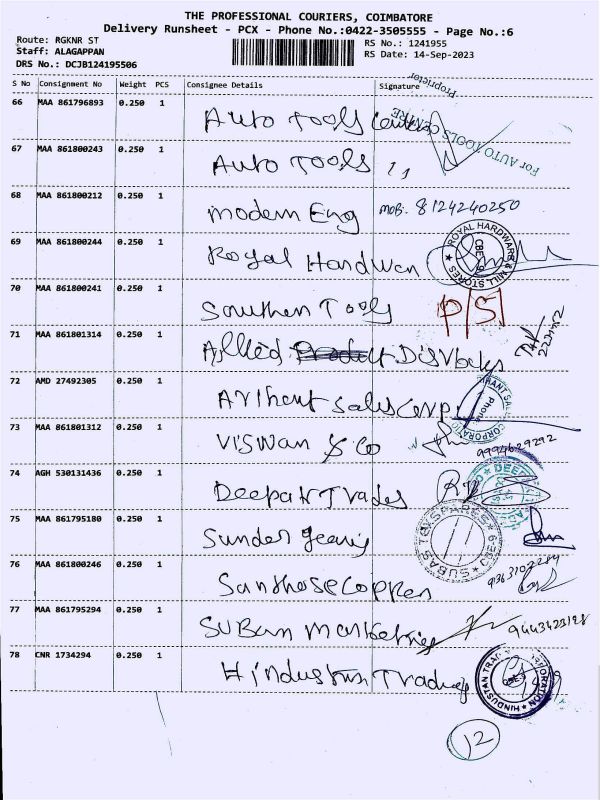 THE PROFESSIONAL COURIERS, COIMBATORE
Delivery Runsheet - PCX - Phone No.:0422-3505555 - Page No.:6
Route: RGKNR ST
RS No.: 1241955
Staff: ALAGAPPAN
RS Date: 14-Sep-2023
DRS No.: DCJB124195506
S No Consignment No Weight PCS Consignee Details Signature
Proprietor
66 MAA 861796893 0.250 1 Auto Tools Centre
For AUTO TOOLS CENTRE
67 MAA 861800243 0.250 1 Auto Tools 11
68 MAA 861800212 0.250 1 Modern Eng mob. 8124240250
69 MAA 861800244 0.250 1 Royal Hardwan
ROYAL HARDWARE & MILL STORES CBE
70 MAA 861800241 0.250 1 Southern Tools P/S1
71 MAA 861801314 0.250 1 Allied
72 AMD 27492305 0.250 1 Arihant Sales Corp
73 MAA 861801312 0.250 1 Viswan & Co
74 AGH 530131436 0.250 1 Deepak Trades
75 MAA 861795180 0.250 1 Sunder
SUBAS TEXSPARES CBE-6
76 MAA 861800246 0.250 1
77 MAA 861795294 0.250 1 Suban Marketing
78 CNR 1734294 0.250 1 Hindustan Trading
HINDUSTAN TRADING CORPORATION
12